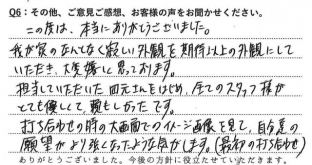 Q6：その他、ご意見ご感想、お客様の声をお聞かせください。
この度は、本当にありがとうございました。
我が家のなんてなく寂しい外観を期待以上の外観にして
いただき、大変嬉しく思っております。
担当していただいた四元さんをはじめ、全てのスタッフ様が
とても優しくて、頼もしかったです。
打ち合わせの時の大画面でのイメージ画像を見て、自分達の
願望がより強くなったような気がします。(最初の打ち合わせ)
ありがとうございました。今後の方針に役立たせていただきます。